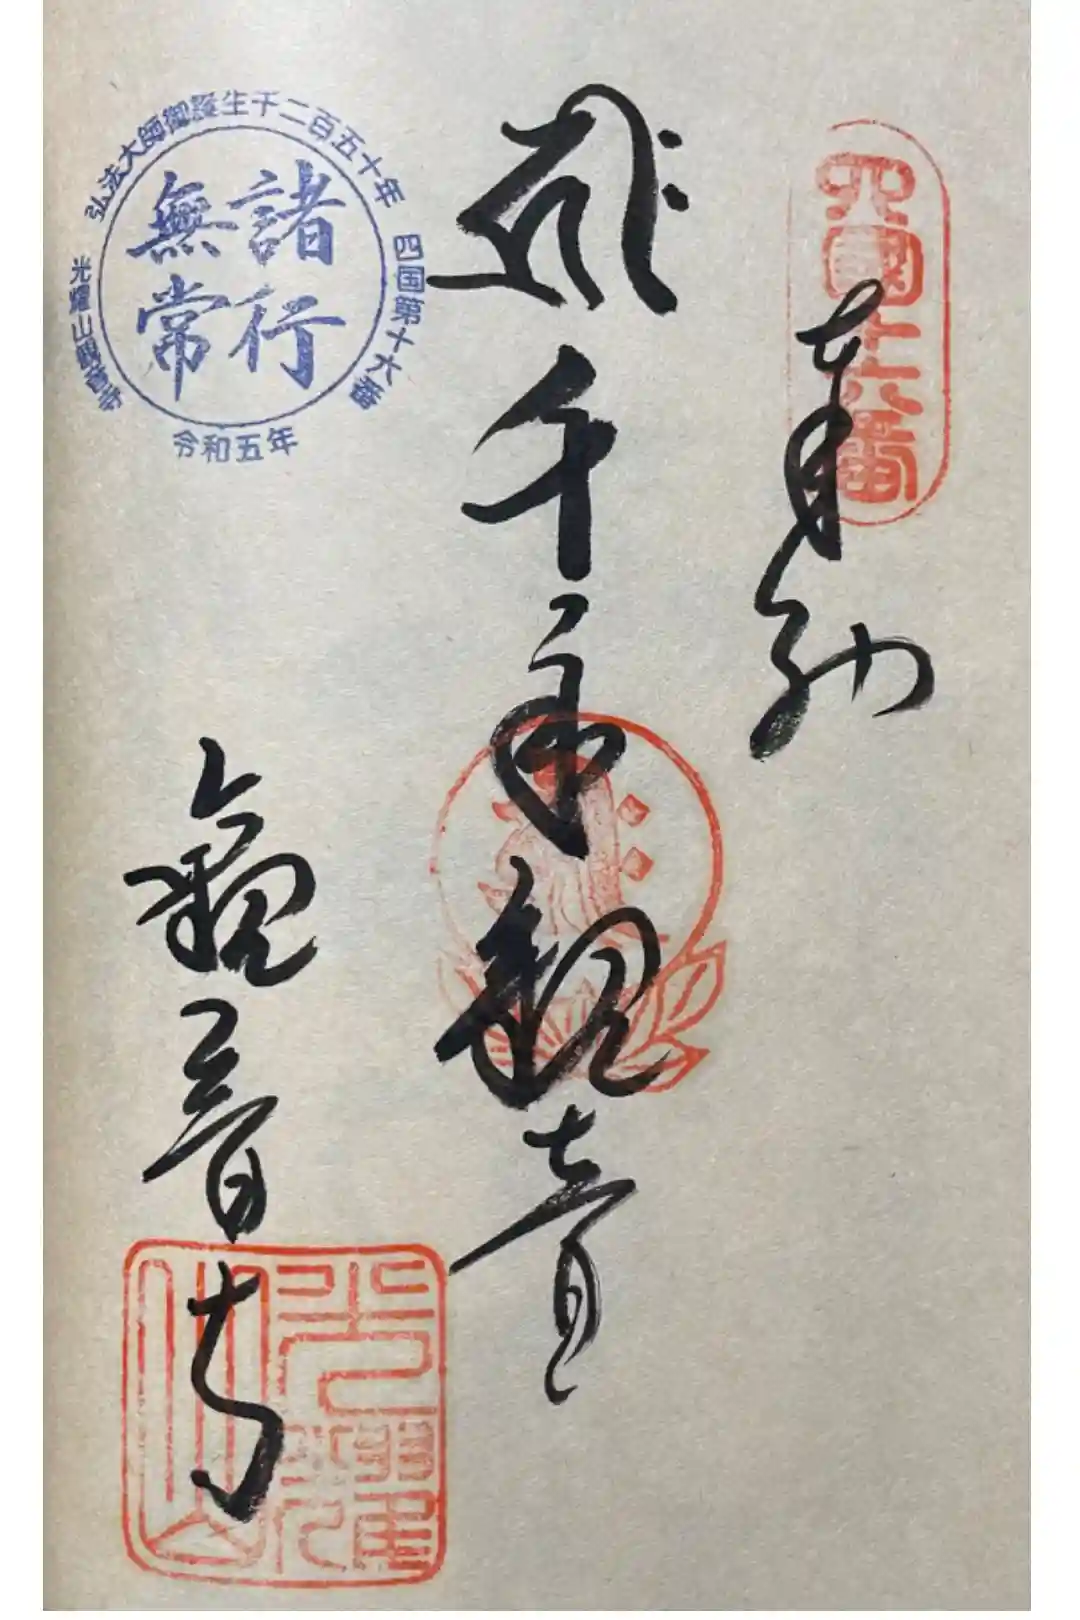 四國十六番
奉納
キリーク千手観音
観音寺
光耀山
弘法大師御誕生千二百五十年
四国第十六番
光耀山観音寺
令和五年
諸行
無常